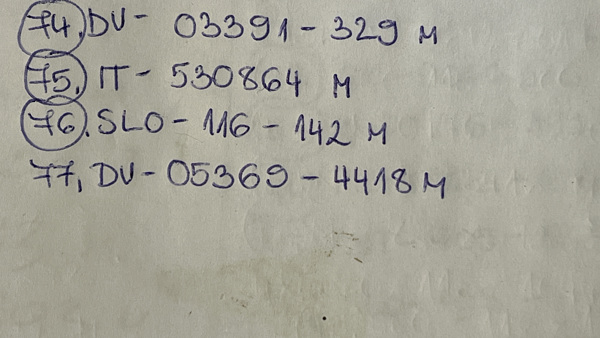 74. DV - 03391 - 329 M
75. IT - 530864 M
76. SLO - 116 - 142 M
77, DV - 05369 - 4418 M